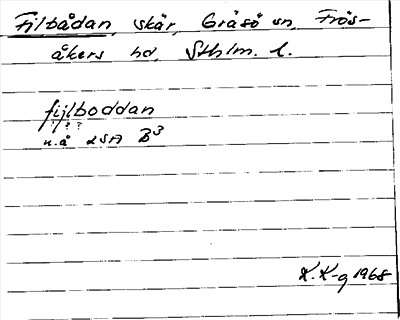 Filbådan, skär, Gräsö sn, Frös-
åkers hd, Sthlm. l.
fijlboddan
u.å LSA B3
K. K-g 1968